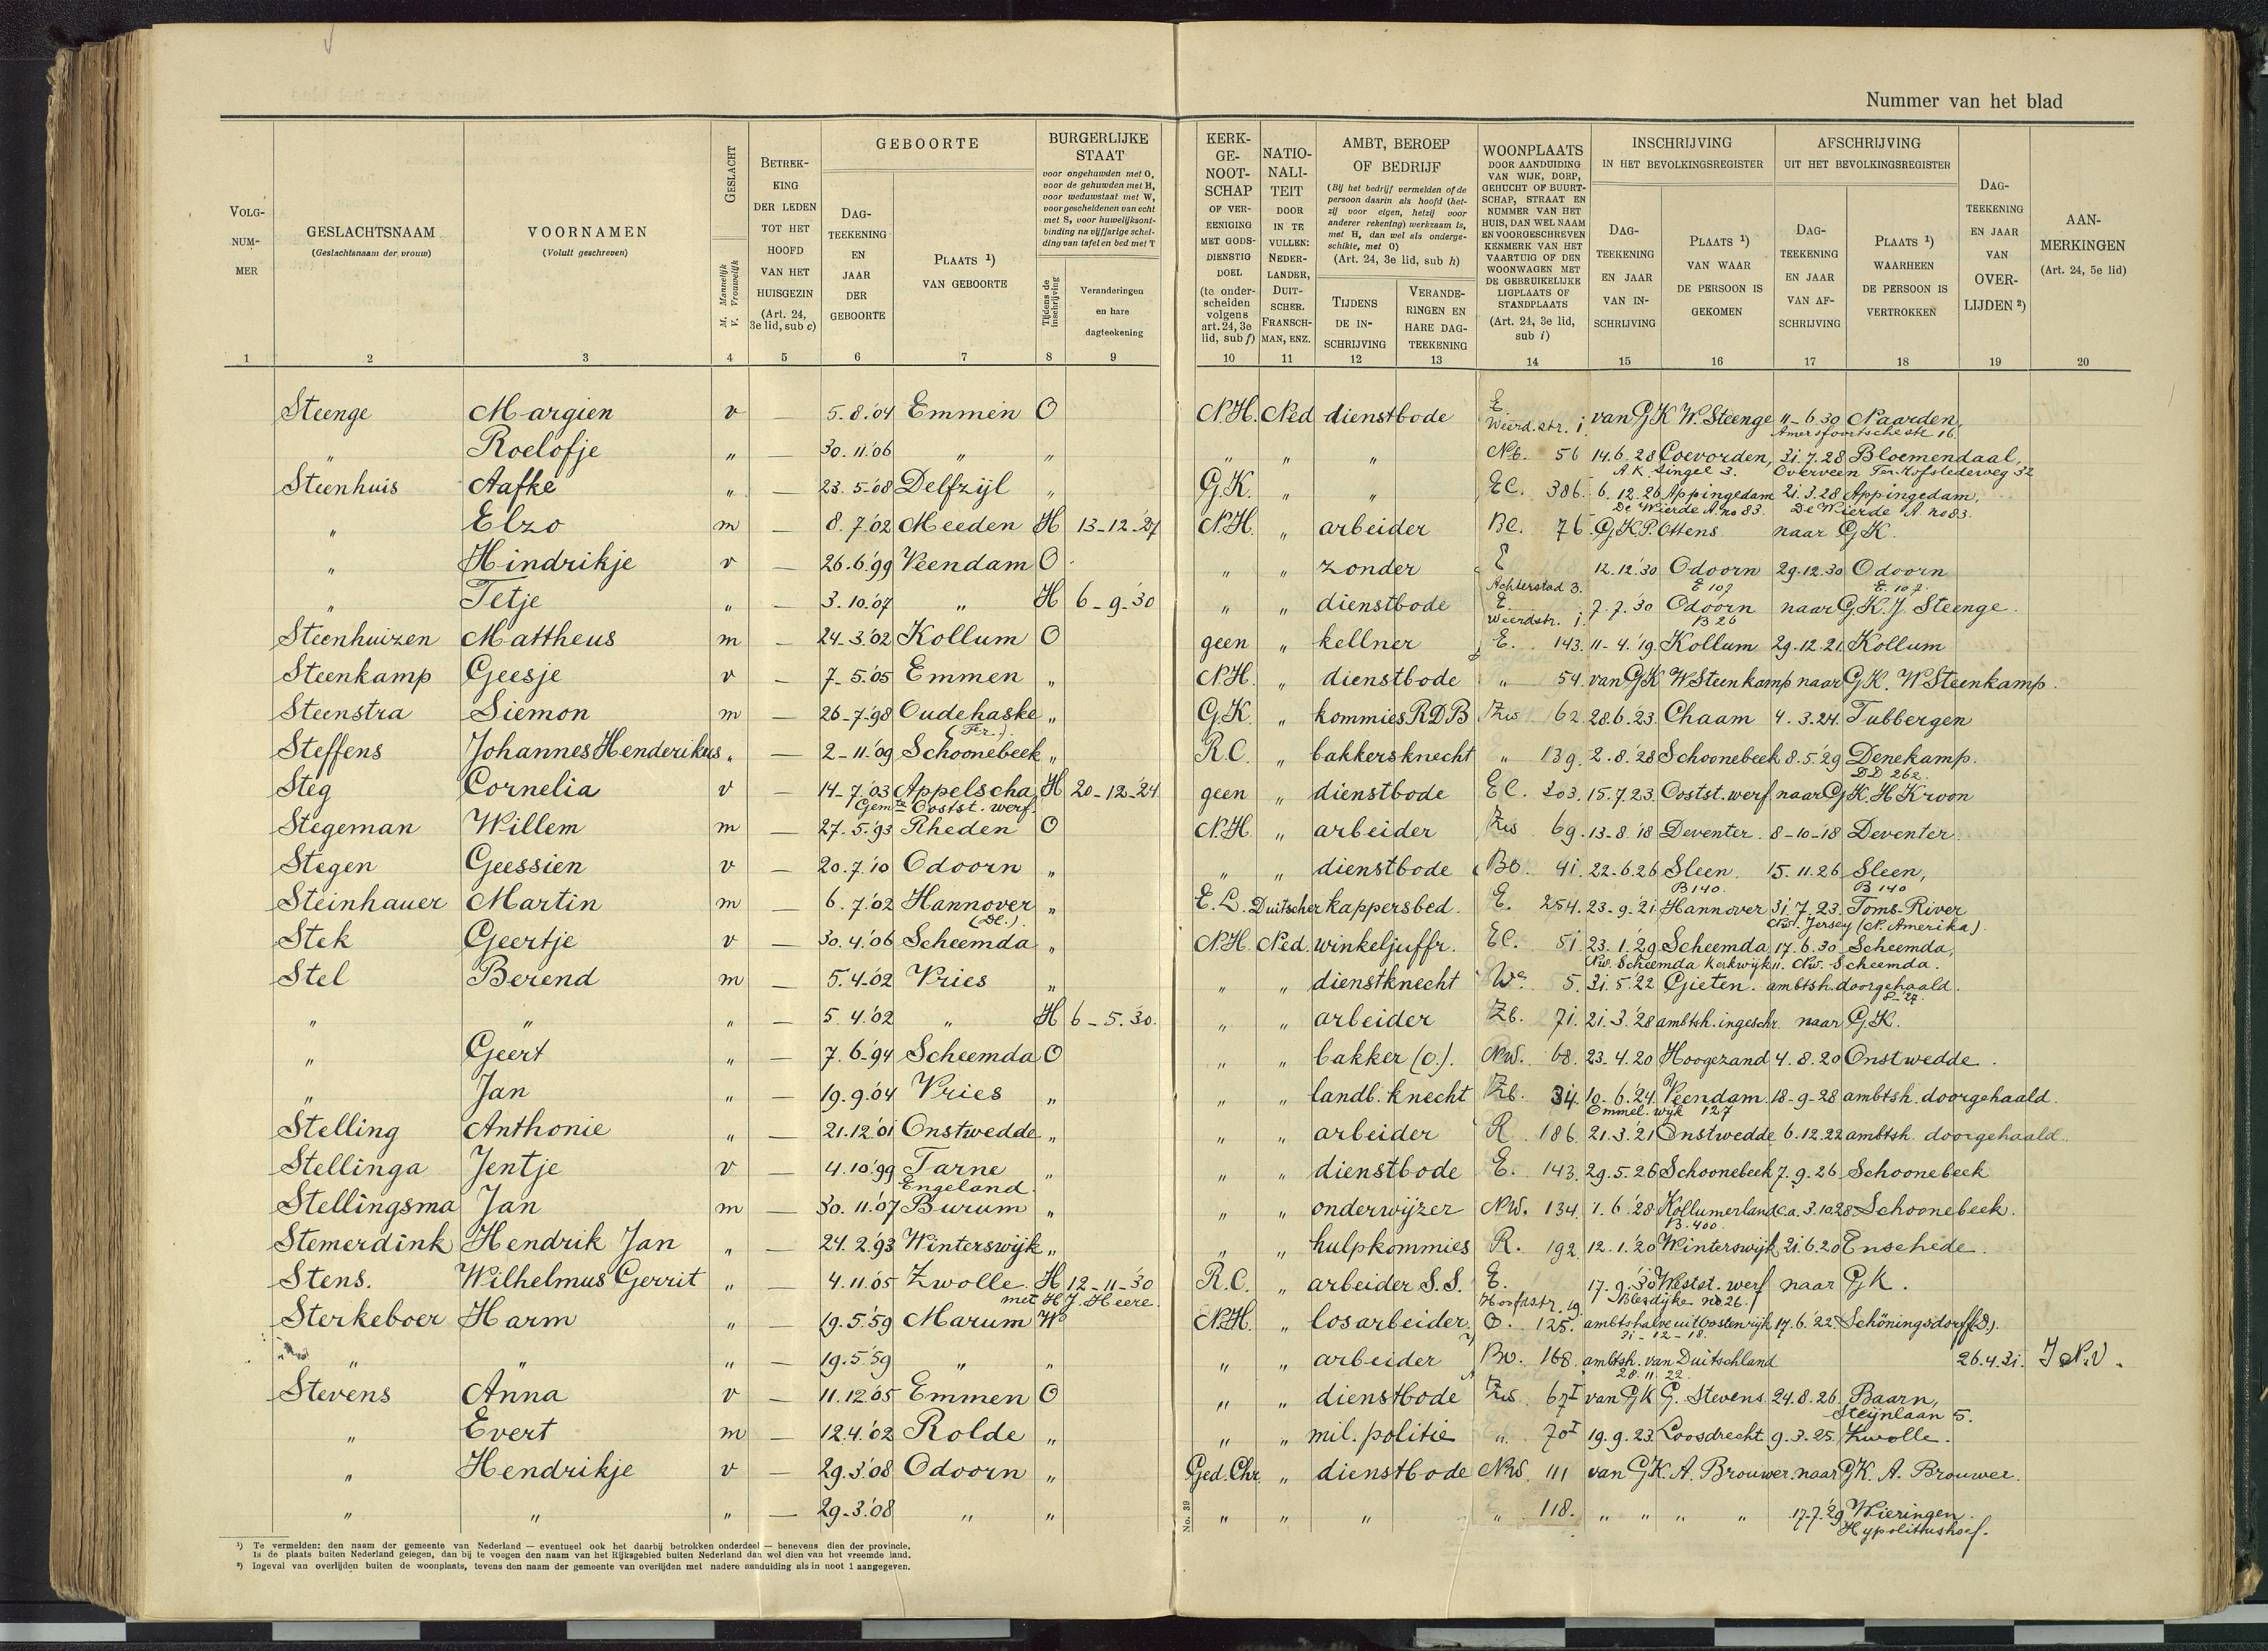 Nummer van het blad
VOLG-NUM-MER 1
GESLACHTSNAAM (Geslachtsnaam der vrouw) 2
VOORNAMEN (Voluit geschreven) 3
GESLACHT M. Mannelijk V. Vrouwelijk 4
BETREK-KING DER LEDEN TOT HET HOOFD VAN HET HUISGEZIN (Art. 24, 3e lid, sub c) 5
GEBOORTE
DAG-TEEKENING EN JAAR DER GEBOORTE 6
PLAATS ¹) VAN GEBOORTE 7
BURGERLIJKE STAAT
voor ongehuwden met O, voor de gehuwden met H, voor weduwstaat met W, voor gescheidenen van echt met S, voor huwelijksont-binding na vijfjarige schei-ding van tafel en bed met T
Tijdens de inschrijving 8
Veranderingen en hare dagteekening 9
KERK-GE-NOOT-SCHAP OF VER-EENIGING MET GODS-DIENSTIG DOEL (te onder-scheiden volgens art. 24, 3e lid, sub f) 10
NATIO-NALI-TEIT DOOR IN TE VULLEN: NEDER-LANDER, DUIT-SCHER, FRANSCH-MAN, ENZ. 11
AMBT, BEROEP OF BEDRIJF
(Bij het bedrijf vermelden of de persoon daarin als hoofd (het-zij voor eigen, hetzij voor anderer rekening) werkzaam is, met H, dan wel als onderge-schikte, met O) (Art. 24, 3e lid, sub h)
TIJDENS DE IN-SCHRIJVING 12
VERANDE-RINGEN EN HARE DAG-TEEKENING 13
WOONPLAATS DOOR AANDUIDING VAN WIJK, DORP, GEHUCHT OF BUURT-SCHAP, STRAAT EN NUMMER VAN HET HUIS, DAN WEL NAAM EN VOORGESCHREVEN KENMERK VAN HET VAARTUIG OF DEN WOONWAGEN MET DE GEBRUIKELIJKE LIGPLAATS OF STANDPLAATS (Art. 24, 3e lid, sub i) 14
INSCHRIJVING IN HET BEVOLKINGSREGISTER
DAG-TEEKENING EN JAAR VAN IN-SCHRIJVING 15
PLAATS ¹) VAN WAAR DE PERSOON IS GEKOMEN 16
AFSCHRIJVING UIT HET BEVOLKINGSREGISTER
DAG-TEEKENING EN JAAR VAN AF-SCHRIJVING 17
PLAATS ¹) WAARHEEN DE PERSOON IS VERTROKKEN 18
DAG-TEEKENING EN JAAR VAN OVER-LIJDEN ²) 19
AAN-MERKINGEN (Art. 24, 5e lid) 20
Steenge Margien v — 5-8-'04 Emmen O N.H. Ned dienstbode E. Weerd.str. 1 van GK W. Steenge 11-6.30 Naarden, Amersfoortschestr 16.
" Roelofje " — 30.11.'06 " " " " " Nb. 56 14.6.28 Coevorden, A.K. Singel 3. 31.7.28 Bloemendaal, Overveen Ter Hofstedeweg 32
Steenhuis Aafke " — 23.5-'08 Delfzijl " G.K. " " EC. 386. 6.12.26 Appingedam De Wierde A. no 83. 21.3.28 Appingedam, De Wierde A. no 83.
" Elzo m — 8.7.'02 Meeden H 13-12-'27 N.H. " arbeider BC. 76. G.K. P. Ottens naar G.K.
" Hindrikje v — 26.6.'99 Veendam O " " zonder E Achterstad 3. 12.12.'30 Odoorn E 107 29.12.30 Odoorn E. 107.
" Tetje " — 3.10.'07 " H 6-9-'30 " " dienstbode E. Weerdstr. 1. 7.7.'30 Odoorn B 26 naar G.K. J. Steenge.
Steenhuizen Mattheus m — 24-3.'02 Kollum O geen " kellner E. 143. 11-4.'19. Kollum 29.12.21. Kollum
Steenkamp Geesje v — 7-5.'05 Emmen " N.H. " dienstbode " 54. van GK W Steenkamp naar GK. W Steenkamp.
Steenstra Siemon m — 26-7-'98 Oudehaske (Fr.) " G.K. " kommies R.D.B Zw 62. 28.6.'23. Chaam 4.3.24. Tubbergen
Steffens Johannes Henderikus " — 2-11.'09 Schoonebeek " R.C. " bakkersknecht " 139. 2.8.'28 Schoonebeek 8.5.'29 Denekamp. DD 262.
Steg Cornelia v — 14-7.'03 Appelscha Gemte Ooststwerf. H 20-12-'24 geen " dienstbode EC. 303. 15.7.23. Ooststwerf naar GK. H Kroon
Stegeman Willem m — 27.5.'93 Rheden O N.H. " arbeider Zw 69. 13-8.'18 Deventer. 8-10-'18 Deventer.
Stegen Geessien v — 20.7.'10 Odoorn " " " dienstbode 41. 22-6.26 Sleen. B 140. 15.11.26 Sleen, B 140
Steinhauer Martin m — 6.7.'02 Hannover (Dl.) " E.L. Duitscher kappersbed. E. 254. 23-9.'21. Hannover 31.7.23. Toms-River Nw. Jersey (N. Amerika).
Stek Geertje v — 30.4.'06 Scheemda " N.H. Ned. winkeljuffr. EC. 51. 23.1.'29. Scheemda Nw. Scheemda Kerkwijk 11. 17.6.30 Scheemda, Nw. Scheemda.
Stel Berend m — 5.4-'02 Vries " " " dienstknecht 5. 31.5.'22 Gieten. ambtsh. doorgehaald.
" " " — 5.4.'02 " H 6-5.'30. " " arbeider Zb. 71. 21.3.'28 ambtsh. ingeschr. naar G.K.
" Geert " — 7.6-'94 Scheemda O " " bakker (o.). NW. 68. 23-4.20 Hoogezand 4.8.20 Onstwedde.
" Jan " — 19.9.'04 Vries " " " landb. knecht Zb. 34. 10-6.'24. Veendam. Ommel. wijk 127 18-9-28 ambtsh. doorgehaald.
Stelling Anthonie " — 21.12.'01 Onstwedde " " " arbeider R 186. 21.3.'21 Onstwedde 6.12.22 ambtsh. doorgehaald.
Stellinga Jentje v — 4.10.'99 Tarne Engeland. " " " dienstbode E. 143. 29.5.26 Schoonebeek 7.9.26 Schoonebeek
Stellingsma Jan m — 30.11.'07 Burum " " " onderwijzer NW. 134. 1.6.'28 Kollumerland c.a. B.400. 3.10.28 Schoonebeek.
Stemerdink Hendrik Jan " — 24.2.'93 Winterswijk " " " hulpkommies R. 192. 12.1.'20 Winterswijk 21.6.20 Enschede.
Stens. Wilhelmus Gerrit " — 4.11.'05 Zwolle H 12-11-'30 met H.J. Heere. R.C. " arbeider S.S. E. Hoofdstr. 19. 17.9.'30 Weststwerf Blesdijke no. 26. naar GK.
Sterkeboer Harm " — 19.5.'59 Marum W N.H. " losarbeider O. 125. ambtshalve uit Oostenrijk 31-12-18. 17.6.'22 Schöningsdorf (D).
" " " — 19.5.'59 " " " " arbeider 168. ambtsh. van Duitschland 28.11.22. 26.4.31. J N.V.
Stevens Anna v — 11.12.'05 Emmen O " " dienstbode Zw. 67I van GK G. Stevens. 24.8.26. Baarn, Steijnlaan 5.
" Evert m — 12.4.'02 Rolde " " " mil. politie " 70I 19.9.23. Loosdrecht 9.3.25. Zwolle.
" Hendrikje v — 29.3.'08 Odoorn " Ged. Chr. " dienstbode NW 111 van GK. A. Brouwer. naar GK. A. Brouwer.
" " " — 29-3.'08 " " " " " " 118. " " " " 17.7.'29 Wieringen. Hypolittushoef.
No. 39
¹) Te vermelden: den naam der gemeente van Nederland — eventueel ook het daarbij betrokken onderdeel — benevens dien der provincie.
Is de plaats buiten Nederland gelegen, dan bij te voegen den naam van het Rijksgebied buiten Nederland dan wel dien van het vreemde land.
²) Ingeval van overlijden buiten de woonplaats, tevens den naam der gemeente van overlijden met nadere aanduiding als in noot 1 aangegeven.